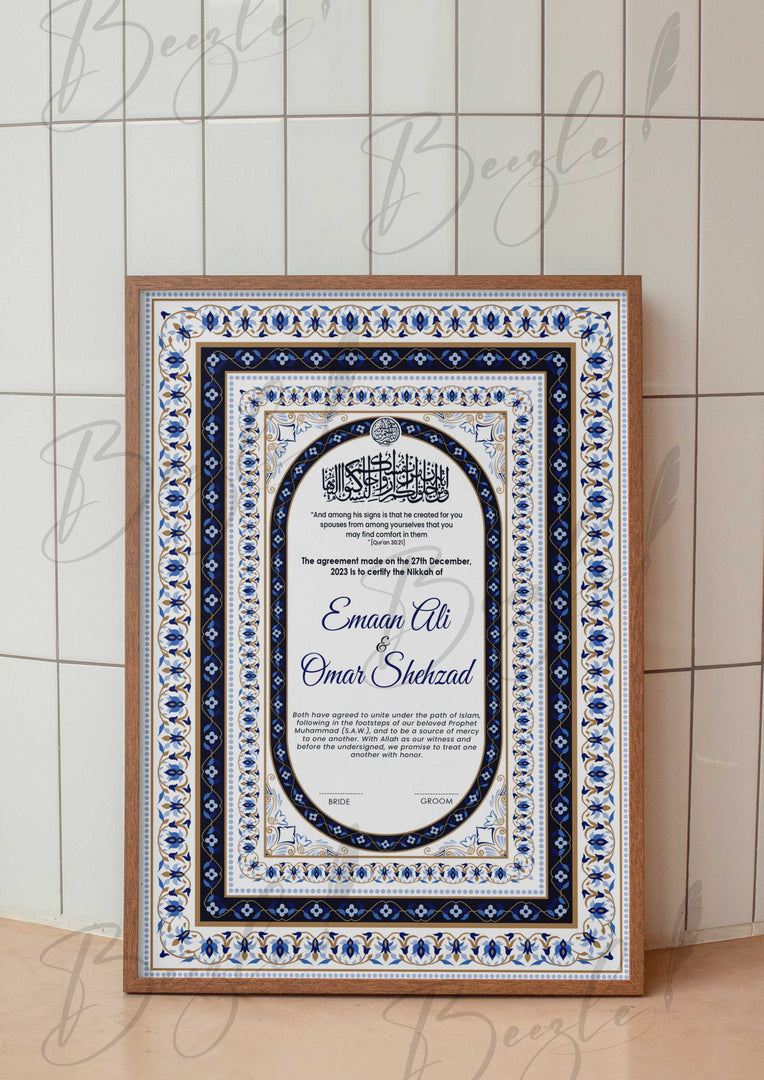 Beezle!
Beezle!
ومن آياته أن خلق لكم من أنفسكم أزواجا لتسكنوا إليها
“And among his signs is that he created for you
spouses from among yourselves that you
may find comfort in them
" [Qur'an 30:21]
The agreement made on the 27th December,
2023 Is to certify the Nikkah of
Emaan Ali
&
Omar Shehzad
Both have agreed to unite under the path of Islam,
following in the footsteps of our beloved Prophet
Muhammad (S.A.W.), and to be a source of mercy
to one another. With Allah as our witness and
before the undersigned, we promise to treat one
another with honor.
BRIDE GROOM
Beezle!